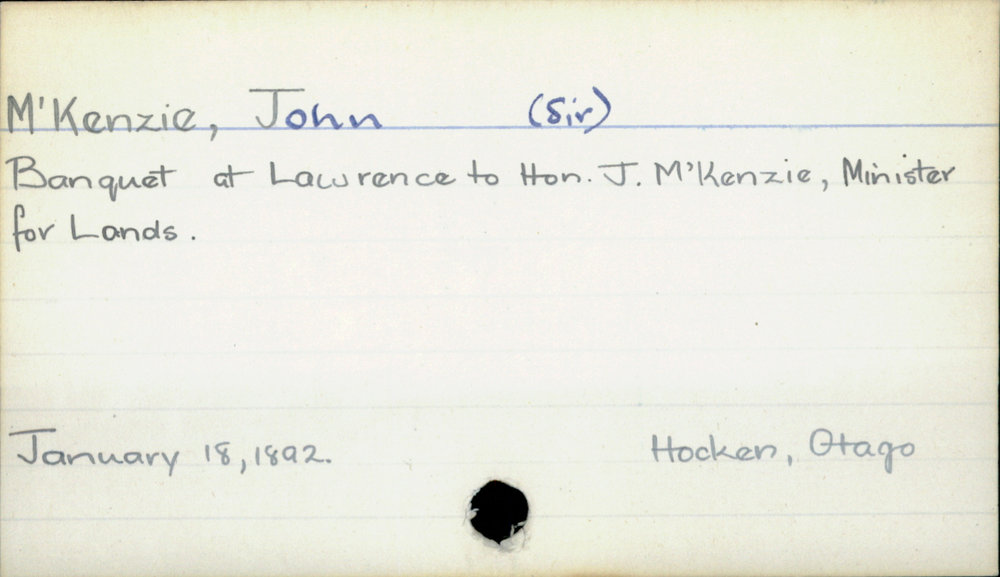 M'Kenzie, John (Sir)
Banquet at Lawrence to Hon. J. M'Kenzie, Minister
for Lands.
January 18, 1892. Hocken, Otago